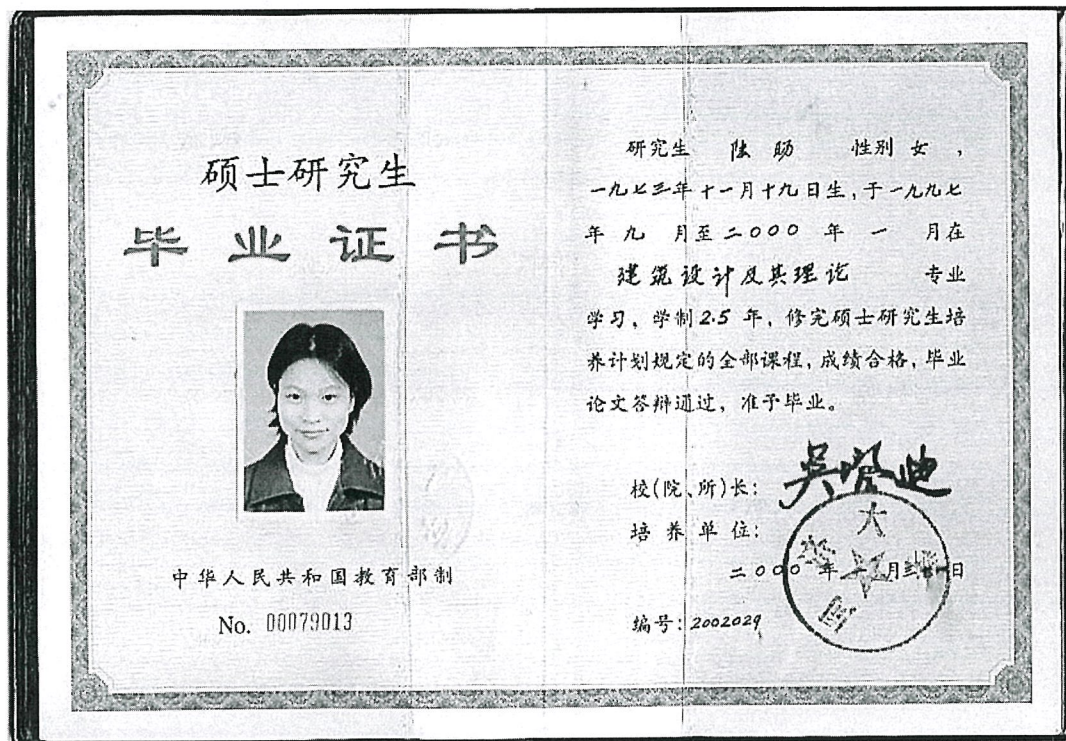 硕士研究生
毕业证书
中华人民共和国教育部制
No. 00079013
研究生 陆旸 性别 女，
一九七三年十一月十九日生，于一九九七
年 九 月至二000 年 一 月在
建筑设计及其理论 专业
学习，学制 2.5 年，修完硕士研究生培
养计划规定的全部课程，成绩合格，毕业
论文答辩通过，准予毕业。
校(院、所)长：吴启迪
培养单位：
二000 年 月 日
编号：2002029
同济大学